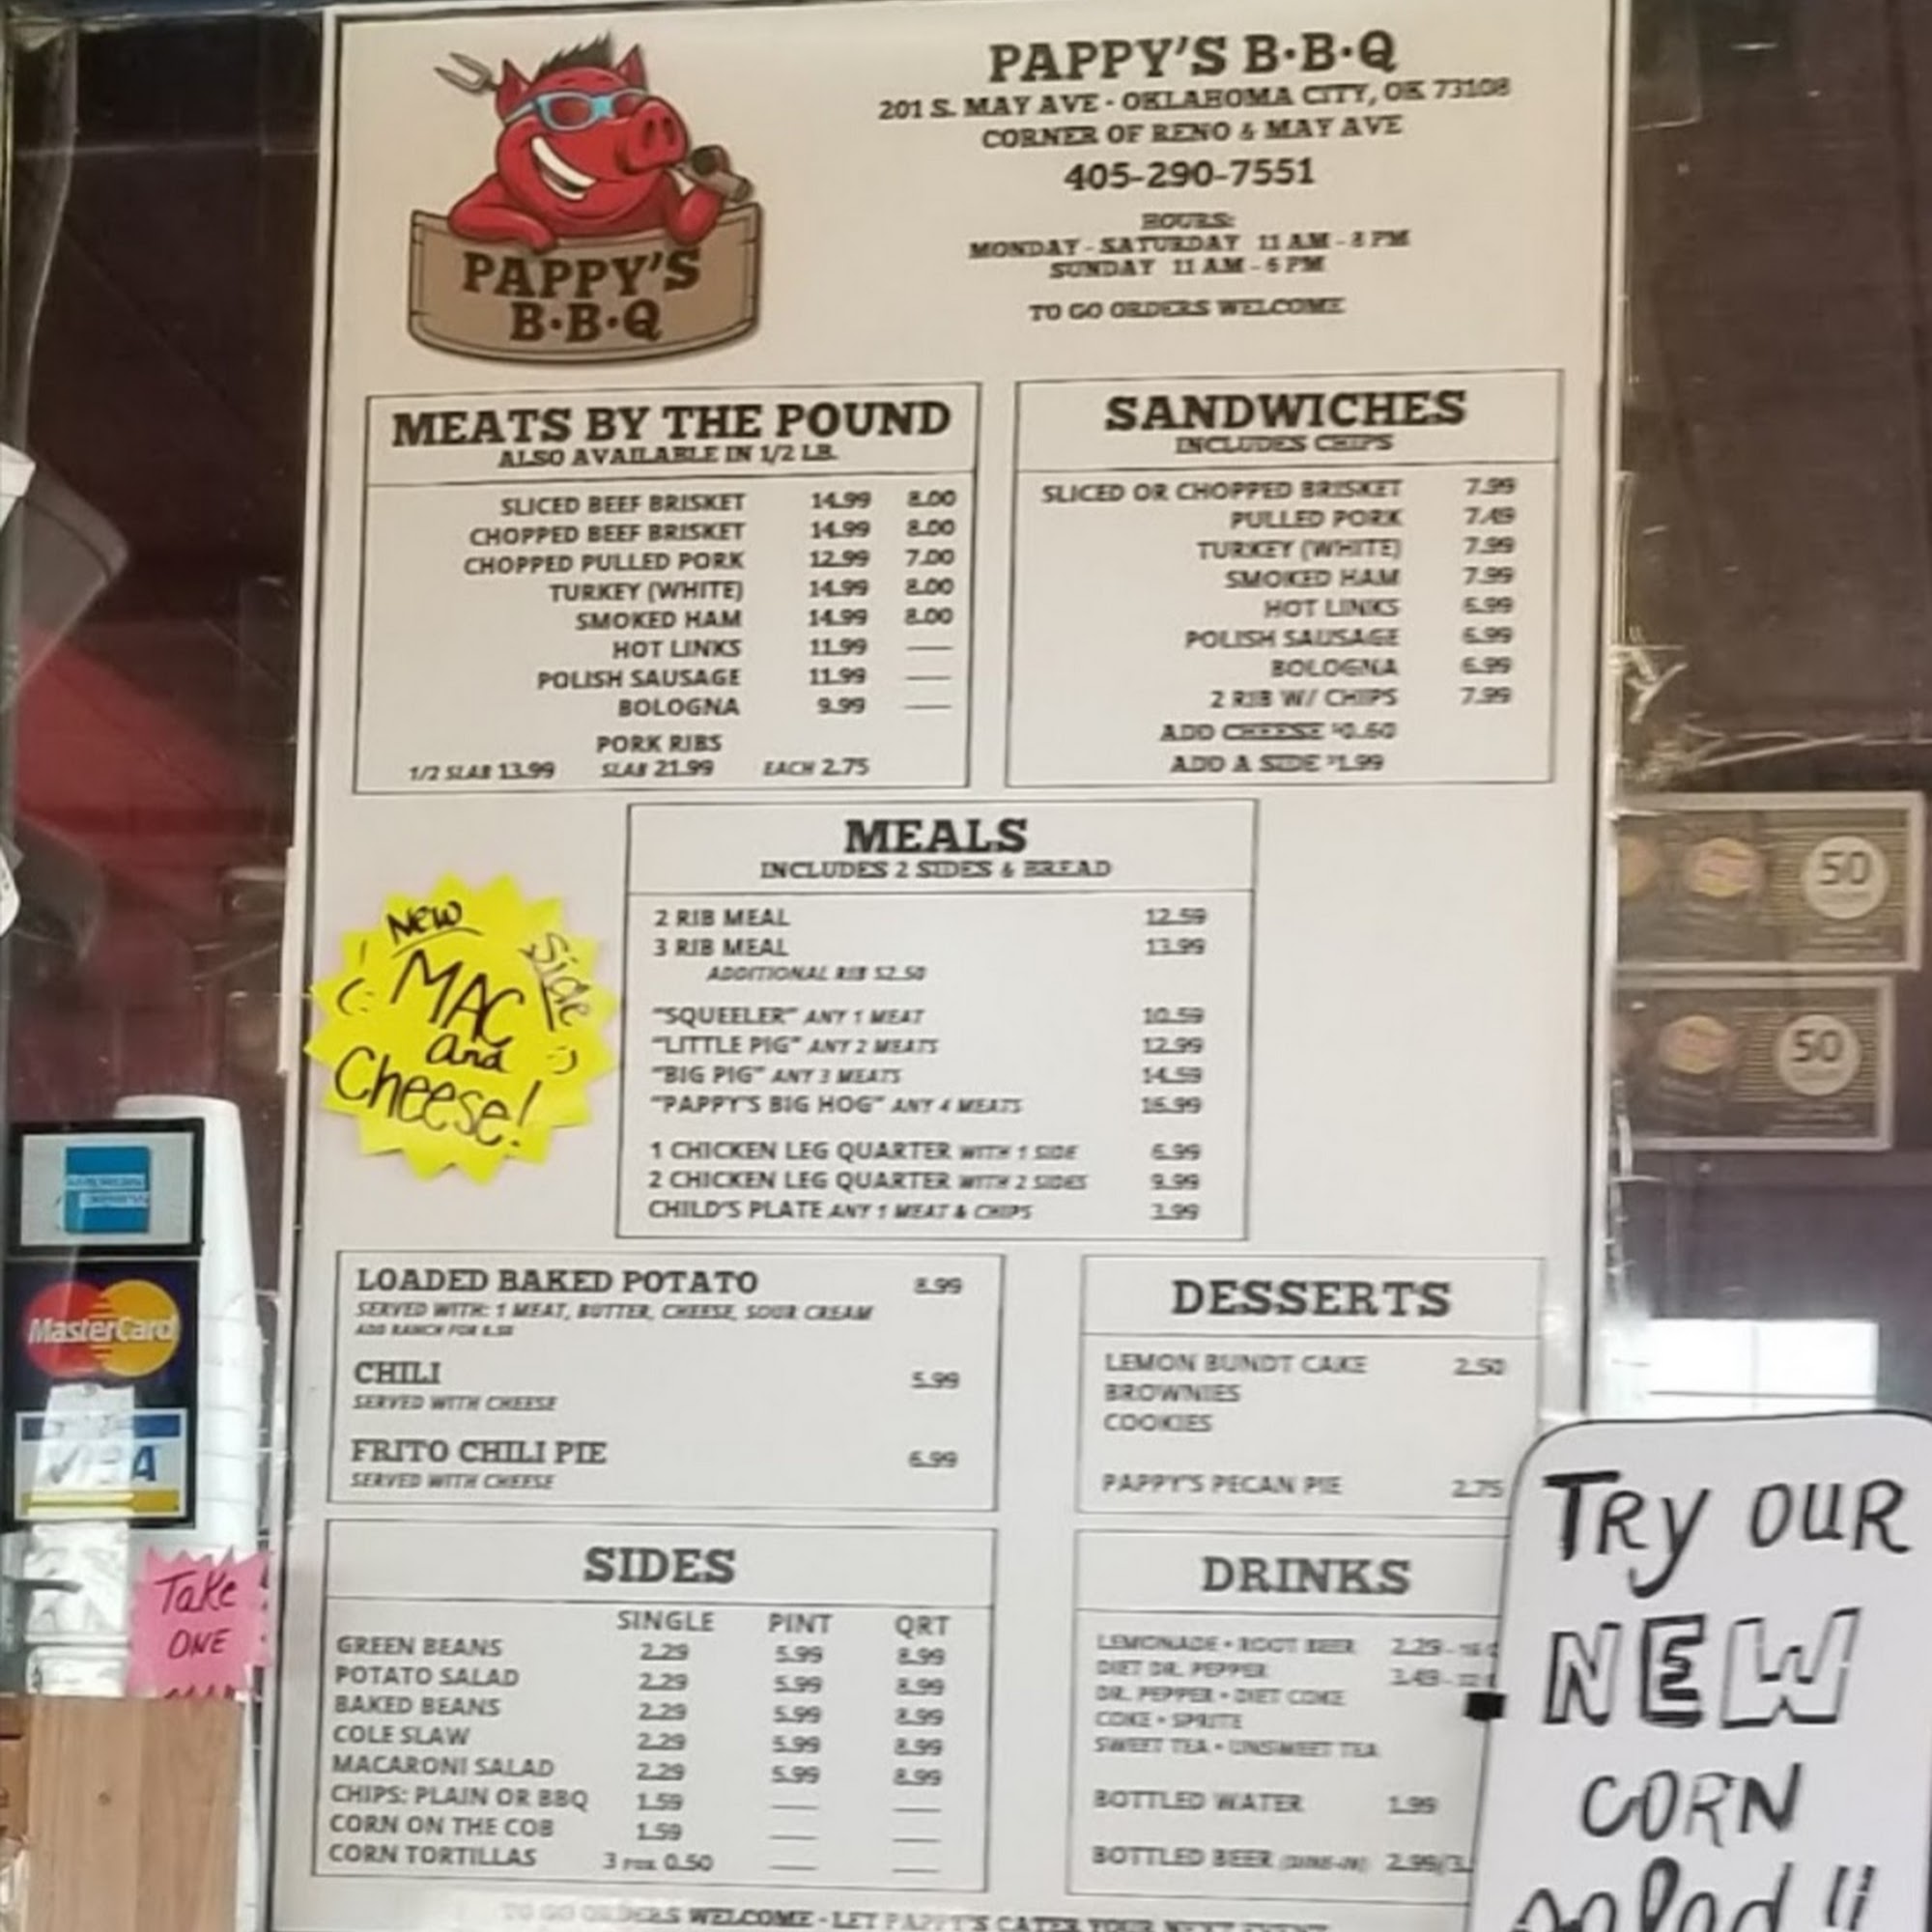 PAPPY'S
B·B·Q
PAPPY'S B·B·Q
201 S. MAY AVE - OKLAHOMA CITY, OK 73108
CORNER OF RENO & MAY AVE
405-290-7551
HOURS:
MONDAY - SATURDAY 11 AM - 8 PM
SUNDAY 11 AM - 6 PM
TO GO ORDERS WELCOME
MEATS BY THE POUND
ALSO AVAILABLE IN 1/2 LB.
SLICED BEEF BRISKET 14.99 8.00
CHOPPED BEEF BRISKET 14.99 8.00
CHOPPED PULLED PORK 12.99 7.00
TURKEY (WHITE) 14.99 8.00
SMOKED HAM 14.99 8.00
HOT LINKS 11.99 —
POLISH SAUSAGE 11.99 —
BOLOGNA 9.99 —
PORK RIBS
1/2 SLAB 13.99 SLAB 21.99 EACH 2.75
SANDWICHES
INCLUDES CHIPS
SLICED OR CHOPPED BRISKET 7.99
PULLED PORK 7.49
TURKEY (WHITE) 7.99
SMOKED HAM 7.99
HOT LINKS 6.99
POLISH SAUSAGE 6.99
BOLOGNA 6.99
2 RIB W/ CHIPS 7.99
ADD CHEESE $0.60
ADD A SIDE $1.99
MEALS
INCLUDES 2 SIDES & BREAD
2 RIB MEAL 12.59
3 RIB MEAL 13.99
ADDITIONAL RIB $2.50
"SQUEELER" ANY 1 MEAT 10.59
"LITTLE PIG" ANY 2 MEATS 12.99
"BIG PIG" ANY 3 MEATS 14.59
"PAPPY'S BIG HOG" ANY 4 MEATS 16.99
1 CHICKEN LEG QUARTER WITH 1 SIDE 6.99
2 CHICKEN LEG QUARTER WITH 2 SIDES 9.99
CHILD'S PLATE ANY 1 MEAT & CHIPS 3.99
New
Side
MAC
and
Cheese!
LOADED BAKED POTATO 8.99
SERVED WITH: 1 MEAT, BUTTER, CHEESE, SOUR CREAM
ADD RANCH FOR
CHILI 5.99
SERVED WITH CHEESE
FRITO CHILI PIE 6.99
SERVED WITH CHEESE
DESSERTS
LEMON BUNDT CAKE 2.50
BROWNIES
COOKIES
PAPPY'S PECAN PIE 2.75
SIDES
SINGLE PINT QRT
GREEN BEANS 2.29 5.99 8.99
POTATO SALAD 2.29 5.99 8.99
BAKED BEANS 2.29 5.99 8.99
COLE SLAW 2.29 5.99 8.99
MACARONI SALAD 2.29 5.99 8.99
CHIPS: PLAIN OR BBQ 1.59 — —
CORN ON THE COB 1.59 — —
CORN TORTILLAS 3 FOR 0.50 — —
DRINKS
LEMONADE • ROOT BEER 2.29
DIET DR. PEPPER 3.49
DR. PEPPER • DIET COKE
COKE • SPRITE
SWEET TEA • UNSWEET TEA
BOTTLED WATER 1.99
BOTTLED BEER (DINE-IN) 2.99/3.
TO GO ORDERS WELCOME - LET PAPPY'S CATER YOUR NEXT EVENT
AMERICAN
EXPRESS
MasterCard
VISA
Take
ONE
50
50
Try OUR
NEW
CORN
Salad!!